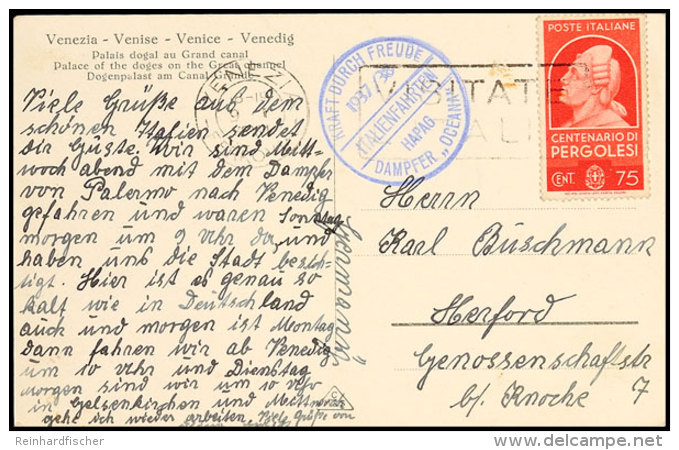 Venezia - Venise - Venice - Venedig
Palais dogal au Grand canal
Palace of the doges on the Great channel
Dogenpalast am Canal Grande
Viele Grüße aus dem
schönen Italien sendet
dir Guste. Wir sind Mitt-
woch abend mit dem Dampfer
von Palermo nach Venedig
gefahren und waren Sonntag
morgen um 9 Uhr da, und
haben uns die Stadt besich-
tigt. Hier ist es genau so
kalt wie in Deutschland
auch und morgen ist Montag
dann fahren wir ab Venedig
um Uhr und Dienstag
morgen sind wir um 10 Uhr
in Gelsenkirchen und Mittwoch
gehe ich wieder arbeiten. Viele Grüße von
Hermann
KRAFT DURCH FREUDE
1937/38
ITALIENFAHRTEN
HAPAG
DAMPFER „OCEANA"
VENEZIA
VISITATE
POSTE ITALIANE
CENTENARIO DI
PERGOLESI
CENT. 75
Herrn
Karl Büschmann
Herford
Genossenschaftstr
b/. Knoche 7
Reinhardfischer
www.delcampe.net